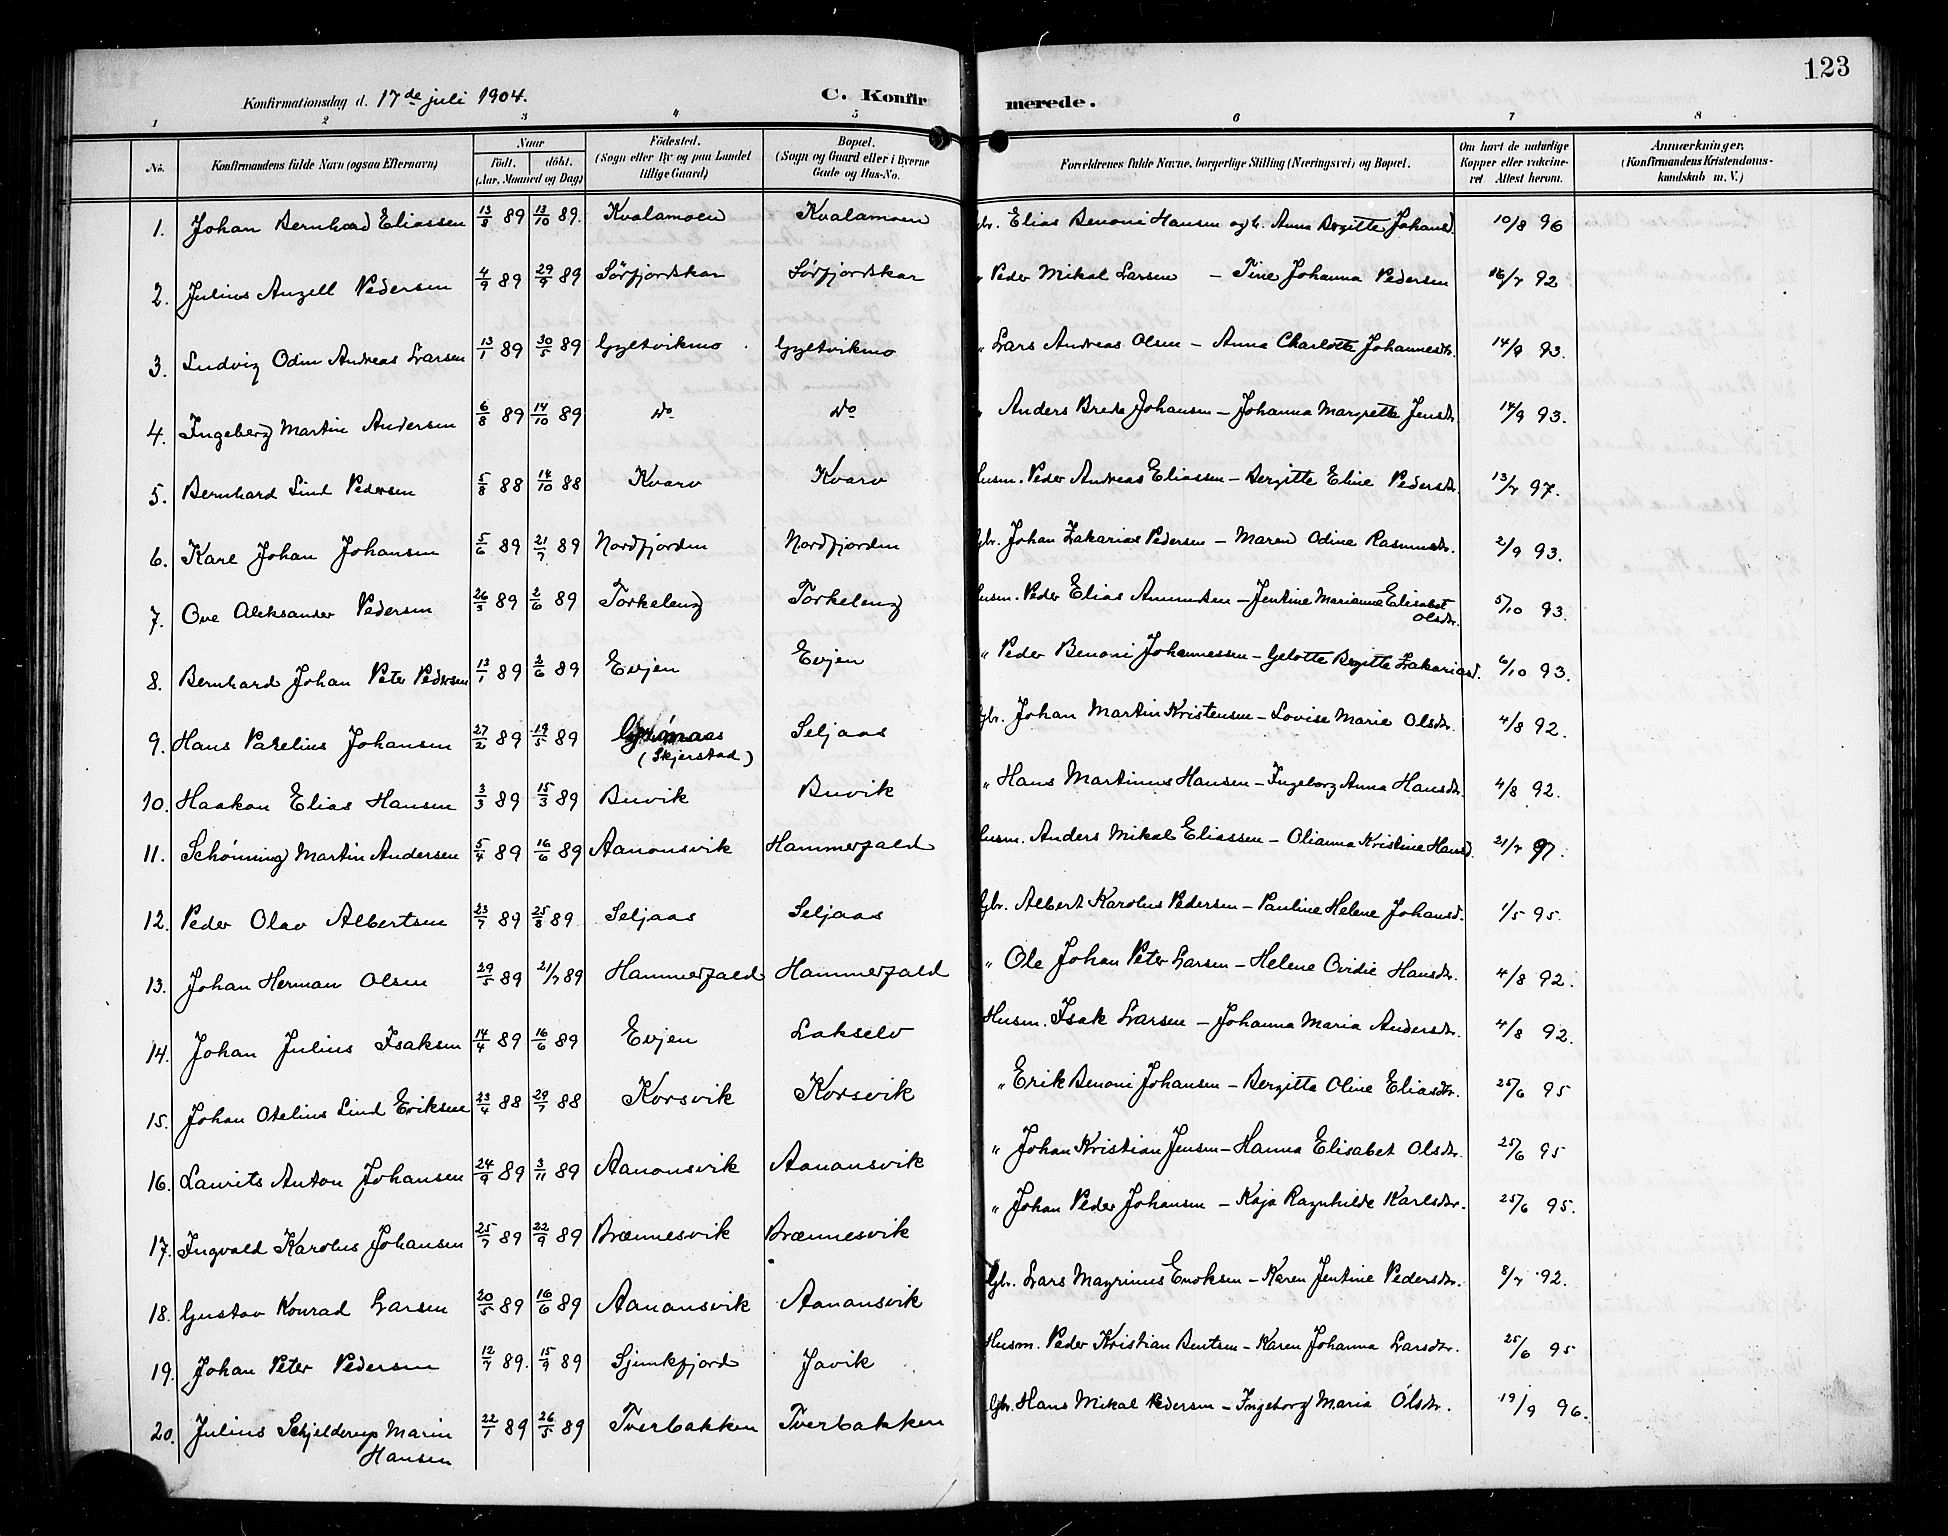 123
Konfirmationsdag d. 17de juli 1904. C. Konfirmerede.
1 2 3 4 5 6 7 8
No. Konfirmandens fulde Navn (ogsaa Efternavn) Naar født. døbt. (Aar, Maaned og Dag) Fødested. (Sogn eller By og paa Landet tillige Gaard) Bopæl. (Sogn og Gaard eller i Byerne Gade og Hus-No. Forældrenes fulde Navne, borgerlige Stilling (Næringsvei) og Bopæl. Om havt de naturlige Kopper eller vaccineret. Attest herom. Anmærkninger. (Konfirmandens Kristendomskundskab m. V.)
1. Johan Bernhard Eliassen 13/8 89 13/10 89. Kvalamoen Kvalamoen Gbr. Elias Benoni Hansen og h. Anna Bergitte Johansd. 10/8 96
2. Julius Angell Pedersen 4/9 89 29/9 89 Sörfjordskar Sörfjordskar " Peder Mikal Larsen – Tine Johanna Pedersen 16/7 92
3. Ludvig Odin Andreas Larsen 13/1 89 30/5 89 Gyltvikmo Gyltvikmo " Lars Andreas Olsen – Anna Charlotte Johannesdr. 14/9 93.
4. Ingeberg Martin Andersen 6/8 89 14/10 89 do do " Anders Brede Johansen – Johanna Margrette Jensdr. 14/9 93.
5. Bernhard Lind Pedersen 5/8 88 14/10 88 Kvarv Kvarv Husm. Peder Andreas Eliassen – Bergitte Eline Pedersdr. 13/7 97.
6. Karl Johan Johansen 5/6 89 21/7 89 Nordfjorden Nordfjorden Gbr. Johan Zakarias Pedersen – Maren Odine Rasmusdr. 2/9 93.
7. Ove Aleksander Pedersen 26/3 89 2/6 89 Torkeleng Torkeleng Husm. Peder Elias Amundsen – Jentine Marianne Elisabet Olsdr. 5/10 93.
8. Bernhard Johan Peter Pedersen 13/1 89 2/6 89 Evjen Evjen " Peder Benoni Johannessen – Gelotte Bergitte Zakariasd. 6/10 93.
9. Hans Parelius Johansen 27/2 89 19/5 89 (Skjerstad) Seljaas Gbr. Johan Martin Kristensen – Lovise Marie Olsdr. 4/8 92.
10. Haakon Elias Hansen 3/3 89 15/3 89 Buvik Buvik " Hans Martinus Hansen – Ingeborg Anna Hansdr. 4/8 92.
11. Schønning Martin Andersen 5/4 89 16/6 89 Aanonsvik Hammerfald Husm. Anders Mikal Eliassen – Olianna Kristine Hansd. 21/7 97.
12. Peder Olav Albertsen 23/7 89 25/8 89 Seljaas Seljaas Gbr. Albert Karolus Pedersen – Pauline Helene Johansd. 1/5 95.
13. Johan Herman Olsen 29/5 89 21/7 89 Hammerfald Hammerfald " Ole Johan Peter Larsen – Helene Ovidie Hansdr. 4/8 92.
14. Johan Julius Isaksen 14/4 89 16/6 89 Evjen Lakselv Husm. Isak Larsen – Johanna Maria Andersdr. 4/8 92.
15. Johan Otelius Lind Eriksen 23/4 88 29/7 88 Korsvik Korsvik " Erik Benoni Johansen – Bergitte Oline Eliasdr. 25/6 95
16. Laurits Anton Johansen 24/9 89 3/11 89 Aanonsvik Aanonsvik " Johan Kristian Jensen – Hanna Elisabet Olsdr. 25/6 95
17. Ingvald Karolus Johansen 25/7 89 22/9 89 Brænnesvik Brænnesvik " Johan Peder Johansen – Kaja Ragnhilde Karlsdr. 25/6 95.
18. Gustav Konrad Larsen 20/5 89 16/6 89 Aanonsvik Aanonsvik Gbr. Lars Magrinus Enoksen – Karen Jentine Pedersdr. 8/7 92.
19. Johan Peter Pedersen 12/7 89. 15/9 89 Sjunkfjord Javik Husm. Peder Kristian Bentsen – Karen Johanna Larsdr. 25/6 95
20. Julius Schjelderup Marin Hansen 22/1 89 26/5 89 Tverbakken Tverbakken Gbr. Hans Mikal Pedersen – Ingeborg Maria Olsdr. 19/9 96.